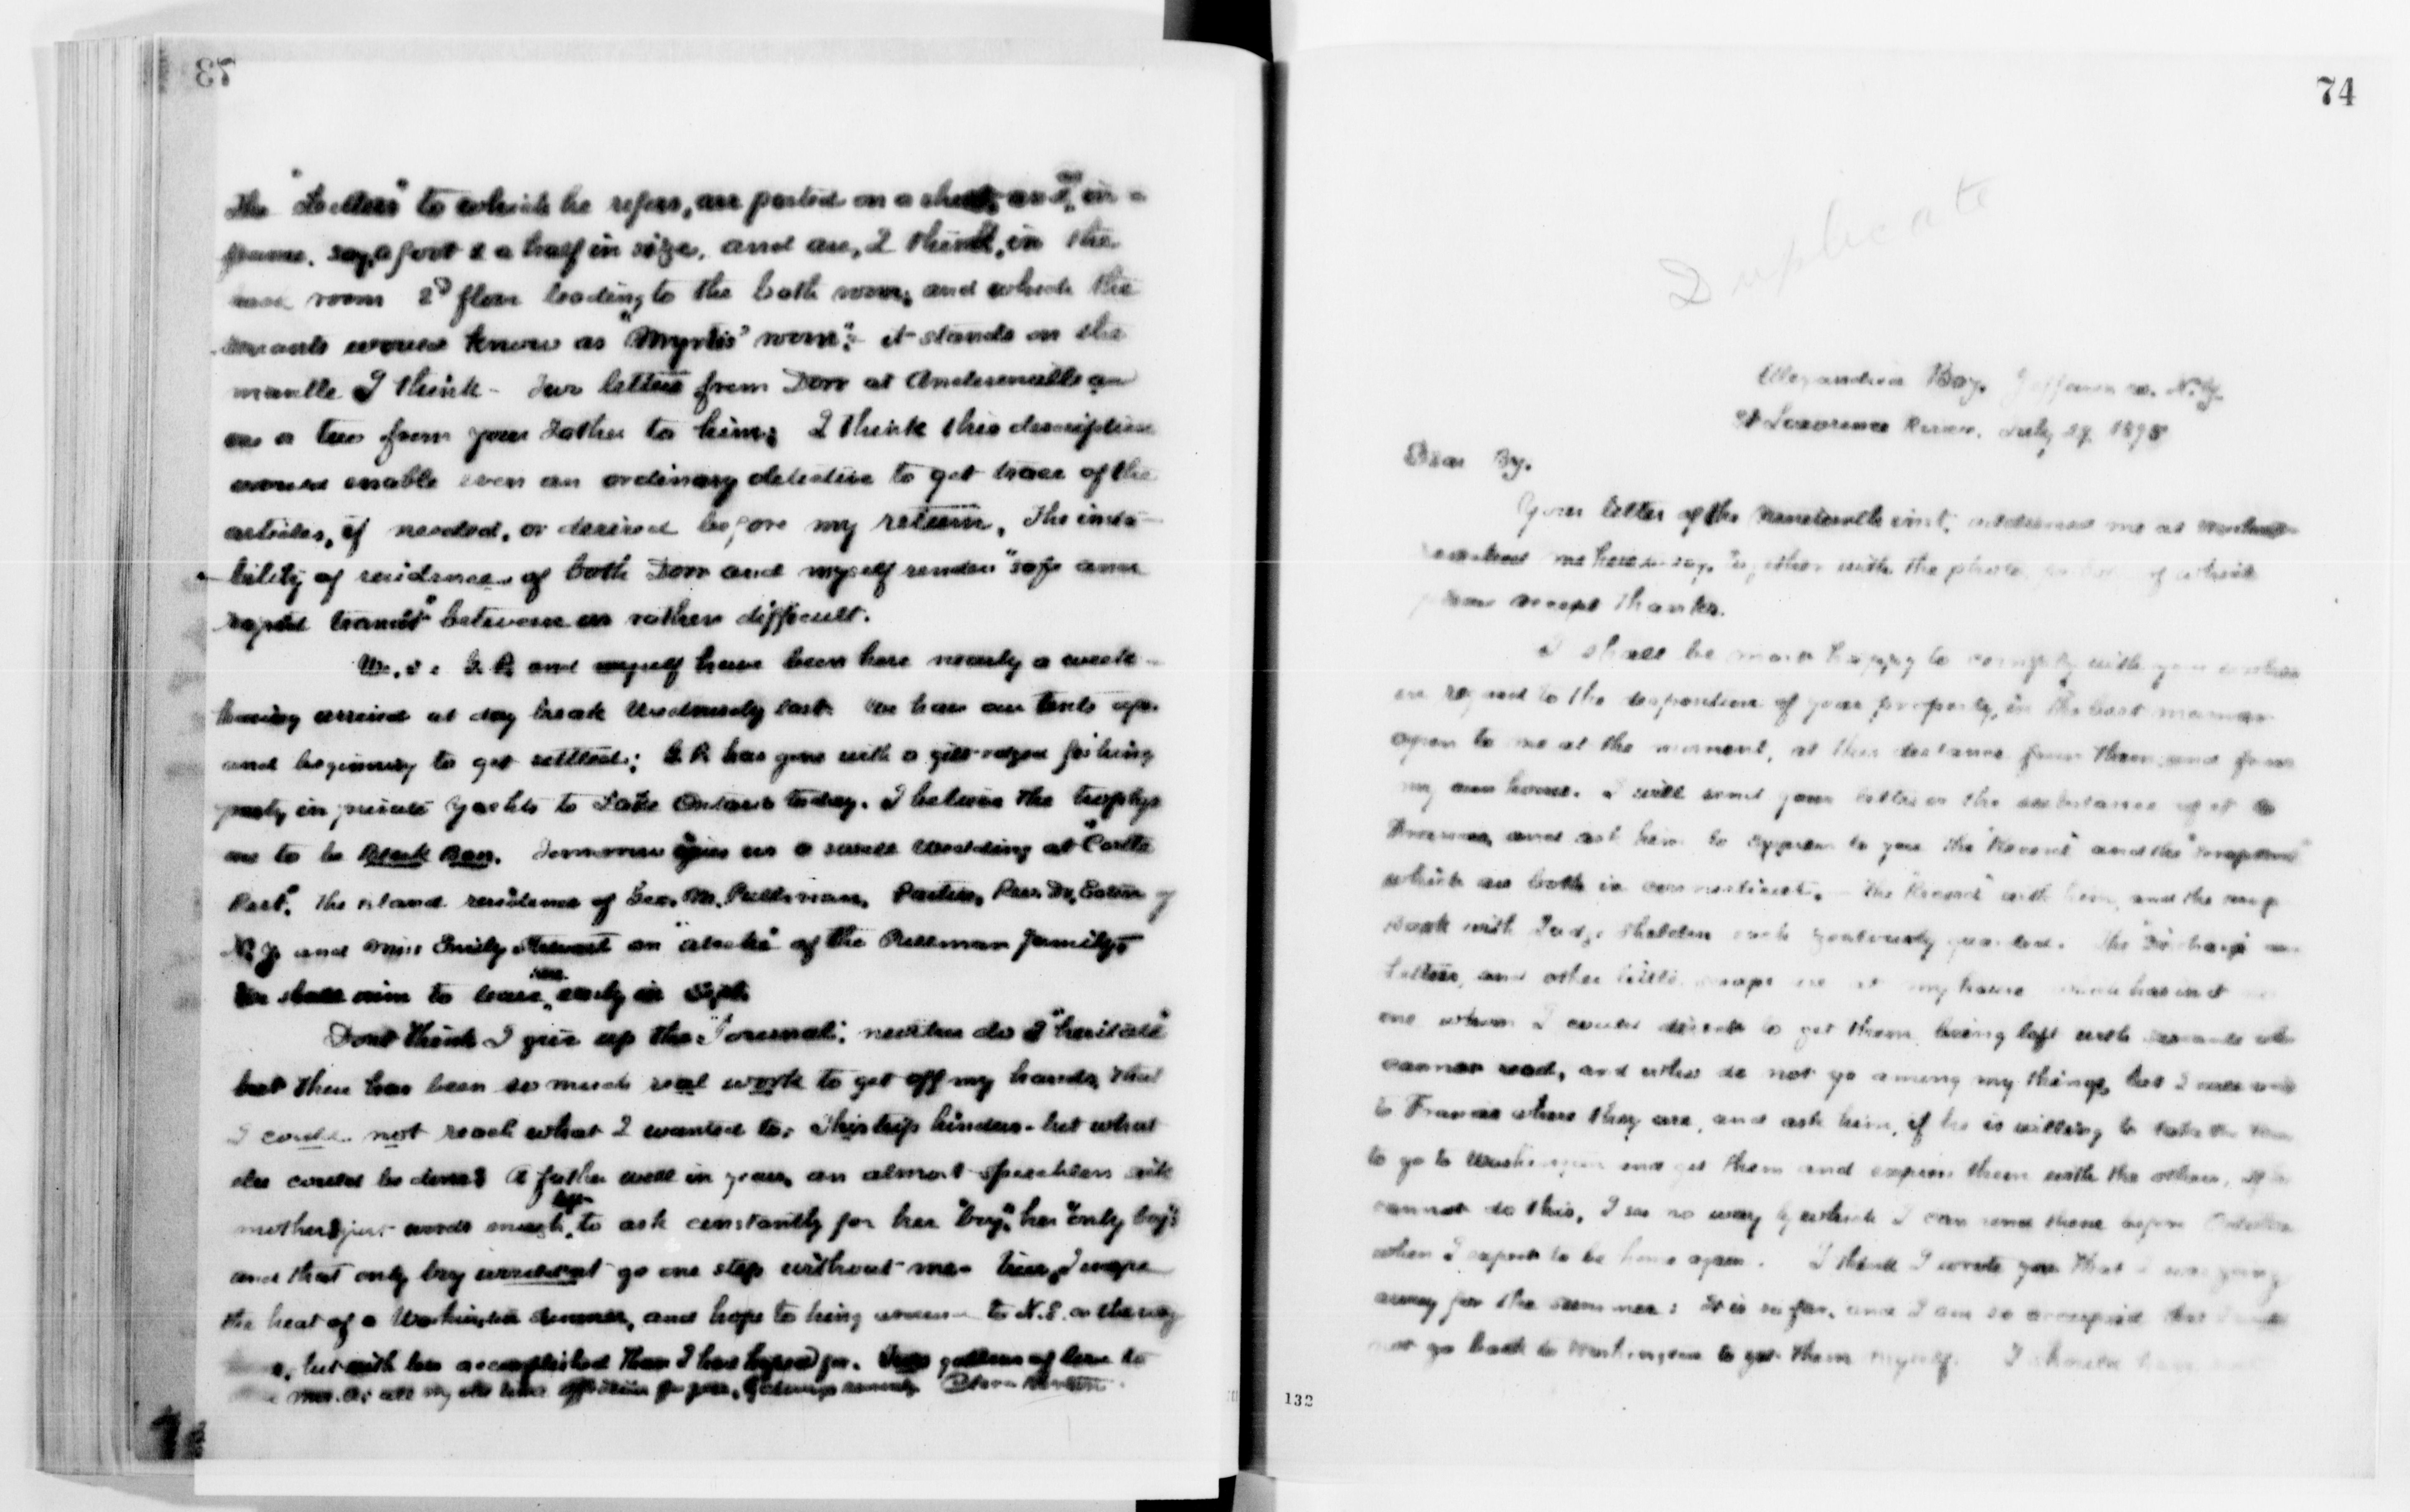 73
The "Letters" to which he refers, are pasted on a sheet, and in a
frame, say, a foot & a half in size, and are, I think, in the
back room 2d floor leading to the bath room, and which the
servants would know as "Myrtis' room"; it stands on the
mantle I think - Two letters from Dorr at Andersonville and
one or two from your Father to him; I think this description
would enable even an ordinary detective to get trace of the
articles, if needed, or desired before my return. The insta-
bility of residence of both Dorr and myself renders "safe and
rapid transit" between us rather difficult.
We, i.e. B. R. and myself have been here nearly a week -
having arrived at day break Wednesday last. We have our tents up.
and beginning to get settled; B. R. has gone with a gilt-edged fishing
party in private yachts to Lake Ontario today. I believe the trophys
are to be Black Bass. Tomorrow gives us a swell wedding at "Castle
Rest", the island residence of Geo. M. Pullman. Parties, Rev. Dr. Eaton of
N. Y. and Miss Emily Stewart an attaché of the Pullman family.
We shall aim to leave here early in Sept.
Dont think I give up the "Journal"; neither do I "hesitate"
but there has been so much real work to get off my hands, that
I could not reach what I wanted to. This trip hinders - but what
else could be done? A father well in years, an almost speechless sick
mother just words enough left to ask constantly for her "boy", her "only boy"
and that only boy would not go one step without me. True, I escape
the heat of a Washington summer, and hope to bring around to N. E. on the way
home, but with less accomplished than I had hoped for. Two gallons of love to
Mrs. as all my old time affection for you, Clara Barton
74
Duplicate
Alexandria Bay. Jefferson co. N.Y.
St Lawrence River. July 29 1895
Dear By.
Your letter of the nineteenth inst. addressed me at Washn
reached me here today together with the photo of which
please accept thanks.
I shall be most happy to comply with your wishes
in regard to the disposition of your property, in the best manner
open to me at the moment, at this distance from them, and from
my own home. I will send your letter or the substance of it to
Francis, and ask him to express to you the "Record" and the "scrapbook"
which are both in Connecticut. - The "Record" with him, and the scrap
book with Judge Sheldon each zealously guarded. The "Discharge" and
Letters, and other little scraps are at my house which has not
one whom I could direct to get them, being left with servants who
cannot read, and who do not go among my things, but I will write
to Francis where they are, and ask him, if he is willing to take the time
to go to Washington and get them and express them with the others, if he
cannot do this, I see no way by which I can send these before October
when I expect to be home again. I think I wrote you that I was going
away for the summer: it is so far, and I am so occupied that I could
not go back to Washington to get them myself. I should have
132